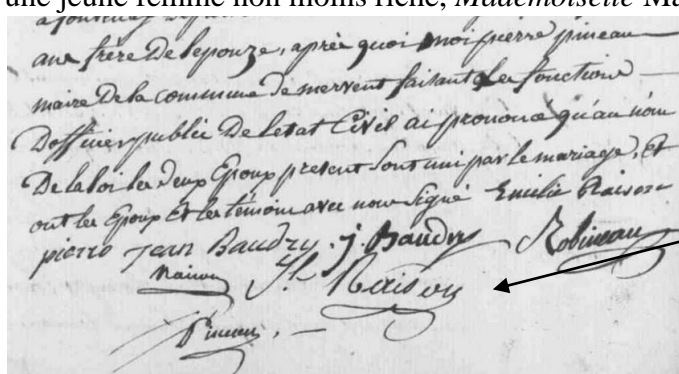 une jeune femme non moins riche, Mademoiselle Ma
frère De lepouze, après quoi moi pierre pineau
maire De la commune De mervent faisant Les fonctions
Dofficier public De letat Civil ai prononcé qu'au nom
De la loi les deux Epoux present sont uni par le mariage, Et
ont les Epoux Et les témoins avec nous signé Emilie Raison
pierre Jean Baudry . j. Baudry Robineau
Raison
Pineau